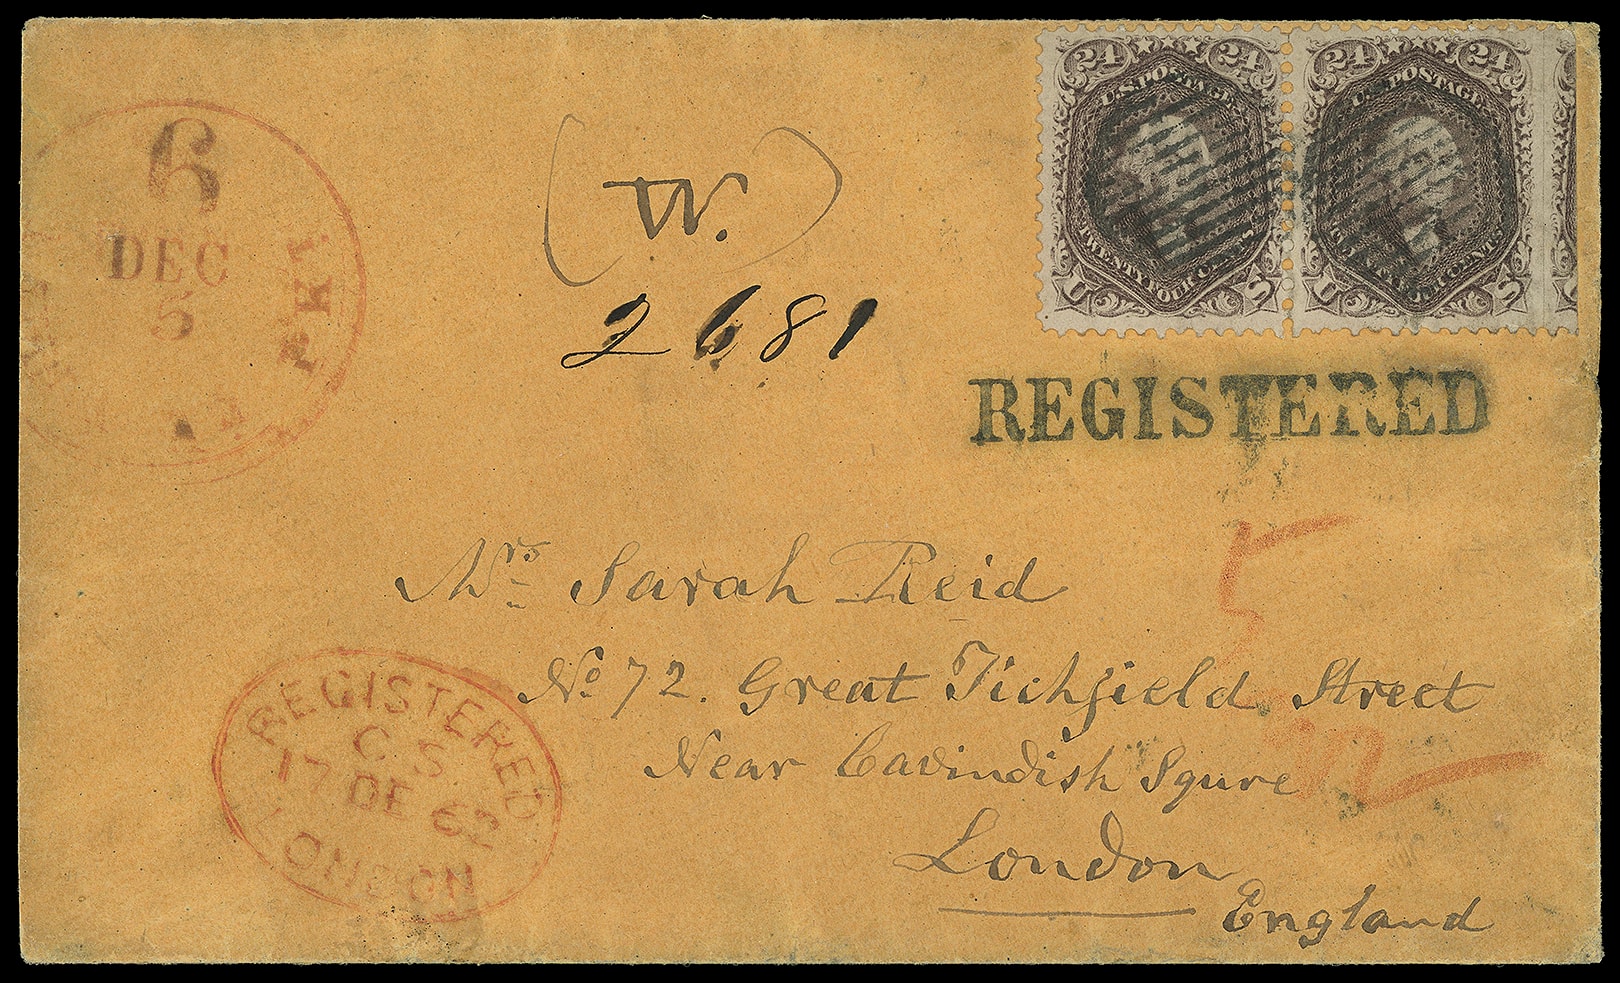 24 24
U.S. POSTAGE
TWENTY FOUR CENTS
U S
24 24
U.S. POSTAGE
TWENTY FOUR CENTS
U S
6
DEC
5
PKT
(W.)
2681
REGISTERED
5
Mrs Sarah Reid
No 72. Great Tichfield Street
Near Cavindish Squre
London
England
REGISTERED
C S
17 DE 62
LONDON